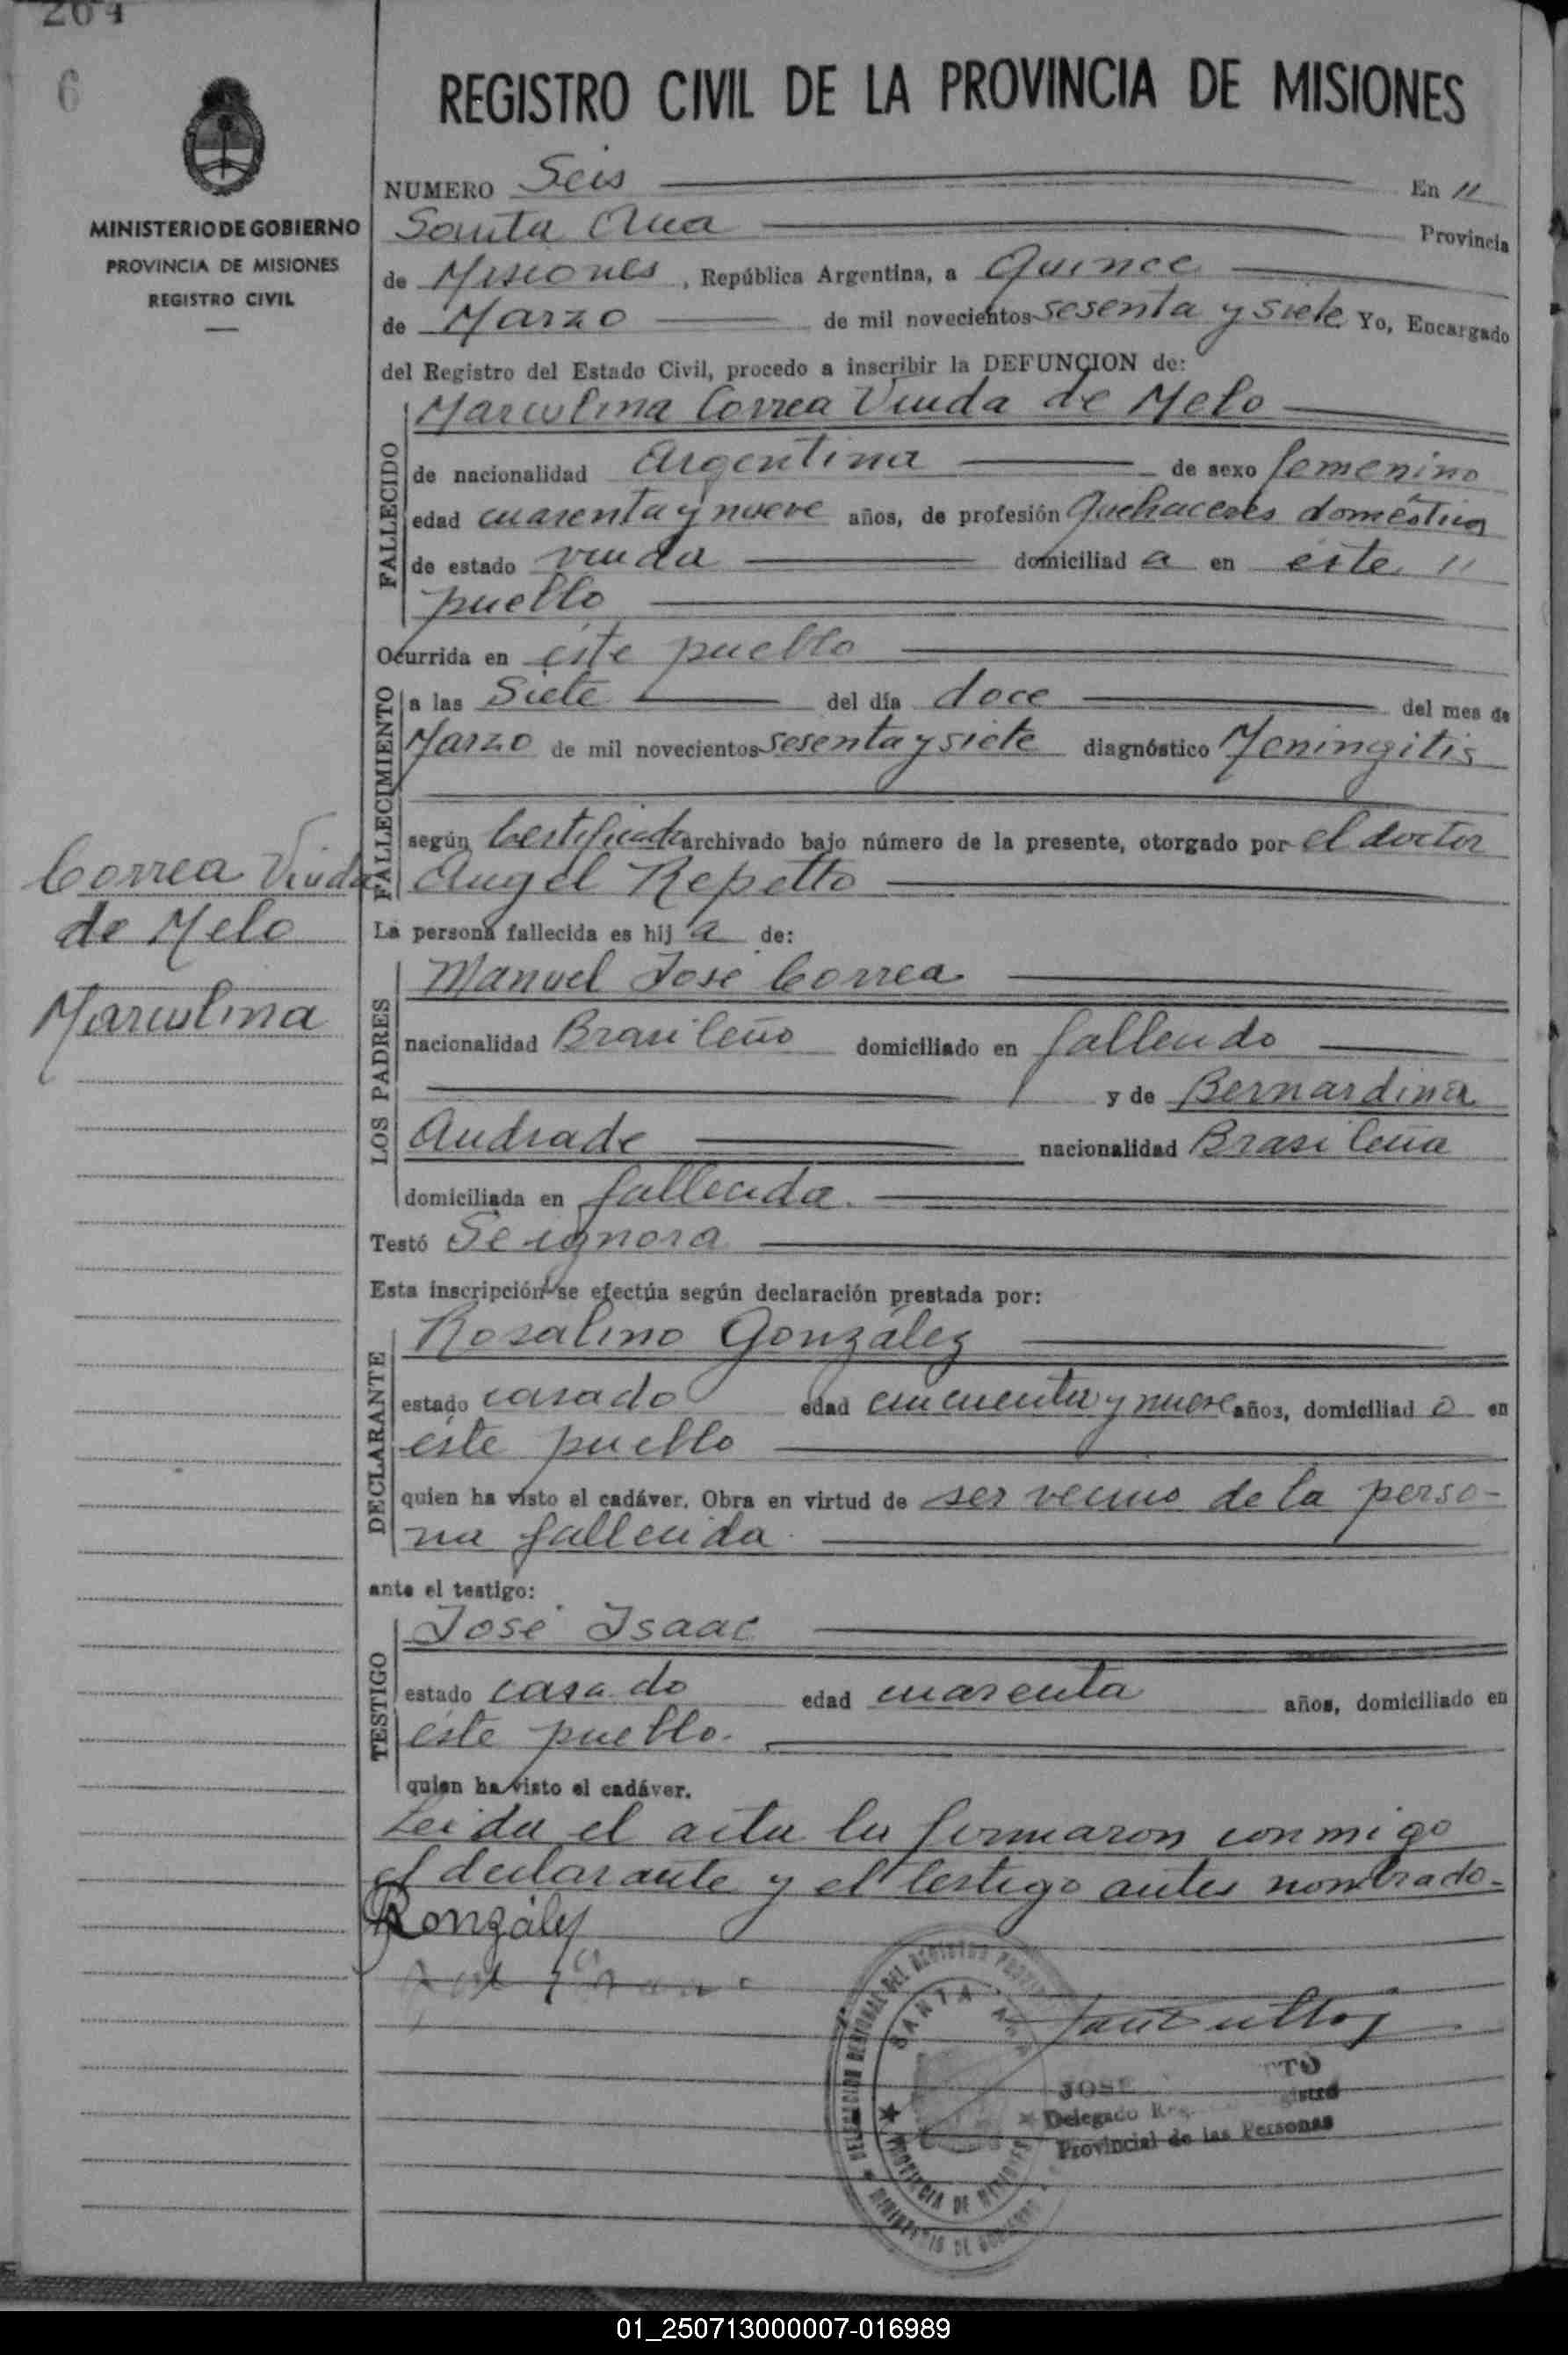 264
6
REGISTRO CIVIL DE LA PROVINCIA DE MISIONES
MINISTERIO DE GOBIERNO
PROVINCIA DE MISIONES
REGISTRO CIVIL
NUMERO Seis En "
Santa Ana Provincia
de Misiones, República Argentina, a Quince
de Marzo de mil novecientos sesenta y siete Yo, Encargado
del Registro del Estado Civil, procedo a inscribir la DEFUNCION de:
FALLECIDO
Marculina Correa Viuda de Melo
de nacionalidad Argentina de sexo femenino
edad cuarenta y nueve años, de profesión Quehaceres domésticos
de estado viuda domiciliad a en este "
pueblo
Ocurrida en éste pueblo
FALLECIMIENTO
a las Siete del día doce del mes de
Marzo de mil novecientos sesenta y siete diagnóstico Meningitis
según Certificado archivado bajo número de la presente, otorgado por el doctor
Angel Repetto
Correa Viuda
de Melo
Marculina
La persona fallecida es hij a de:
LOS PADRES
Manuel José Correa
nacionalidad Brasileño domiciliado en fallecido
y de Bernardina
Andrade nacionalidad Brasileña
domiciliada en fallecida.
Testó Se ignora
Esta inscripción se efectúa según declaración prestada por:
DECLARANTE
Rosalino González
estado casado edad cincuenta y nueve años, domiciliad o en
éste pueblo
quien ha visto el cadáver. Obra en virtud de ser vecino de la perso-
na fallecida.
ante el testigo:
TESTIGO
José Isaac
estado casado edad cuarenta años, domiciliado en
éste pueblo.
quien ha visto el cadáver.
Leida el acta la firmaron conmigo
el declarante y el testigo antes nombrado.
R González
SANTA ANA
PROVINCIA DE MISIONES
MINISTERIO DE GOBIERNO
JOSE
Delegado
Provincial de las Personas
01_250713000007-016989